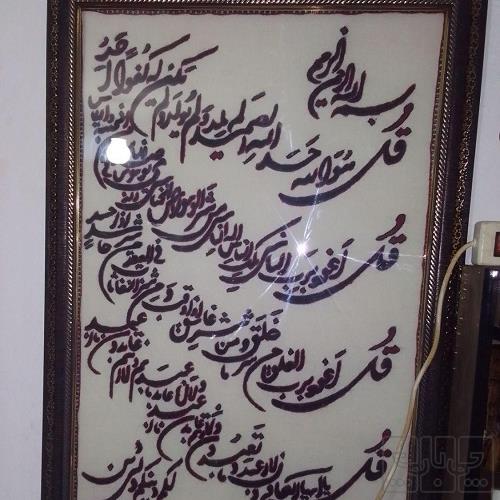 بسم الله الرحمن الرحیم
قل هو الله احد الله الصمد لم یلد و لم یولد و لم یکن له کفوا احد
قل اعوذ برب الناس ملک الناس اله الناس من شر الوسواس الخناس الذی یوسوس فی صدور
قل اعوذ برب الفلق من شر ما خلق و من شر غاسق اذا وقب و من شر النفاثات فی العقد و من شر حاسد اذا حسد
قل یا ایها الکافرون لا اعبد ما تعبدون و لا انتم عابدون ما اعبد و لا انا عابد ما عبدتم و لا انتم عابدون ما اعبد لکم دینکم ولی دین